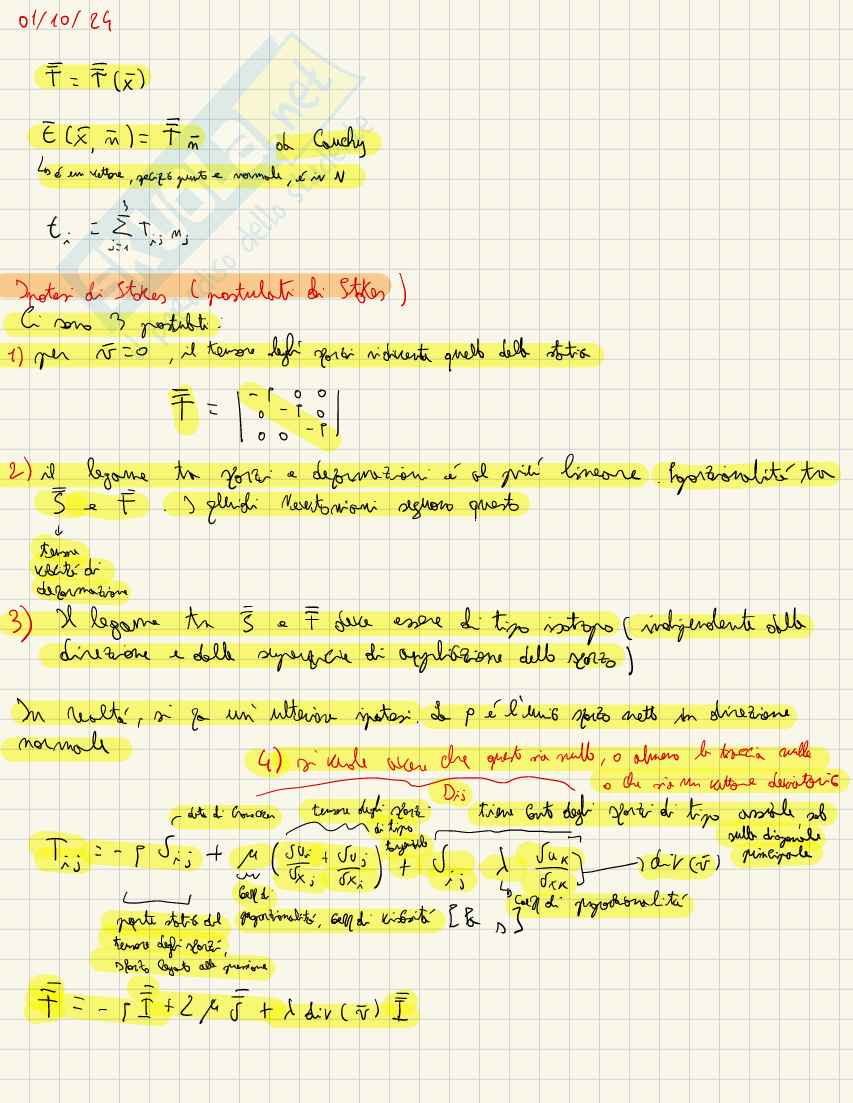 01/10/24
T̿ = T̿(x̄)
t̄(x̄, n̄) = T̿ n̄   da Cauchy
↳ è un vettore, forza punto e normale, è in N
t_i = Σ_{j=1}^{3} T_ij n_j
Ipotesi di Stokes (postulati di Stokes)
Ci sono 3 postulati:
1) per v̄=0, il tensore degli sforzi ridiventa quello della statica
T̿ = | -p 0 0 |
| 0 -p 0 |
| 0 0 -p |
2) il legame tra sforzi e deformazioni è al più lineare. Proporzionalità tra
S̿ e T̿. I fluidi Newtoniani seguono questo
↓
tensore
velocità di
deformazione
3) Il legame tra S̿ e T̿ deve essere di tipo isotropo (indipendente dalla
direzione e dalla superficie di applicazione dello sforzo)
In realtà, si fa un'ulteriore ipotesi. La p è l'unico sforzo netto in direzione
normale
4) si vuole avere che questo sia nullo, o almeno la traccia nulla
o che sia un vettore deviatorico
D_ij
delta di Kronecker
tensore degli sforzi
di tipo
tangenziale
tiene conto degli sforzi di tipo assiale solo
sulla diagonale
principale
T_ij = -p δ_ij + μ (δu_i/δx_j + δu_j/δx_i) + δ_ij λ δu_k/δx_k → div(v̄)
parte statica del
tensore degli sforzi,
sforzo legato alla pressione
coeff di
proporzionalità, coeff di viscosità
coeff di proporzionalità
T̿ = -p I̿ + 2 μ S̿ + λ div(v̄) I̿
skuola.net
il paradiso dello studente